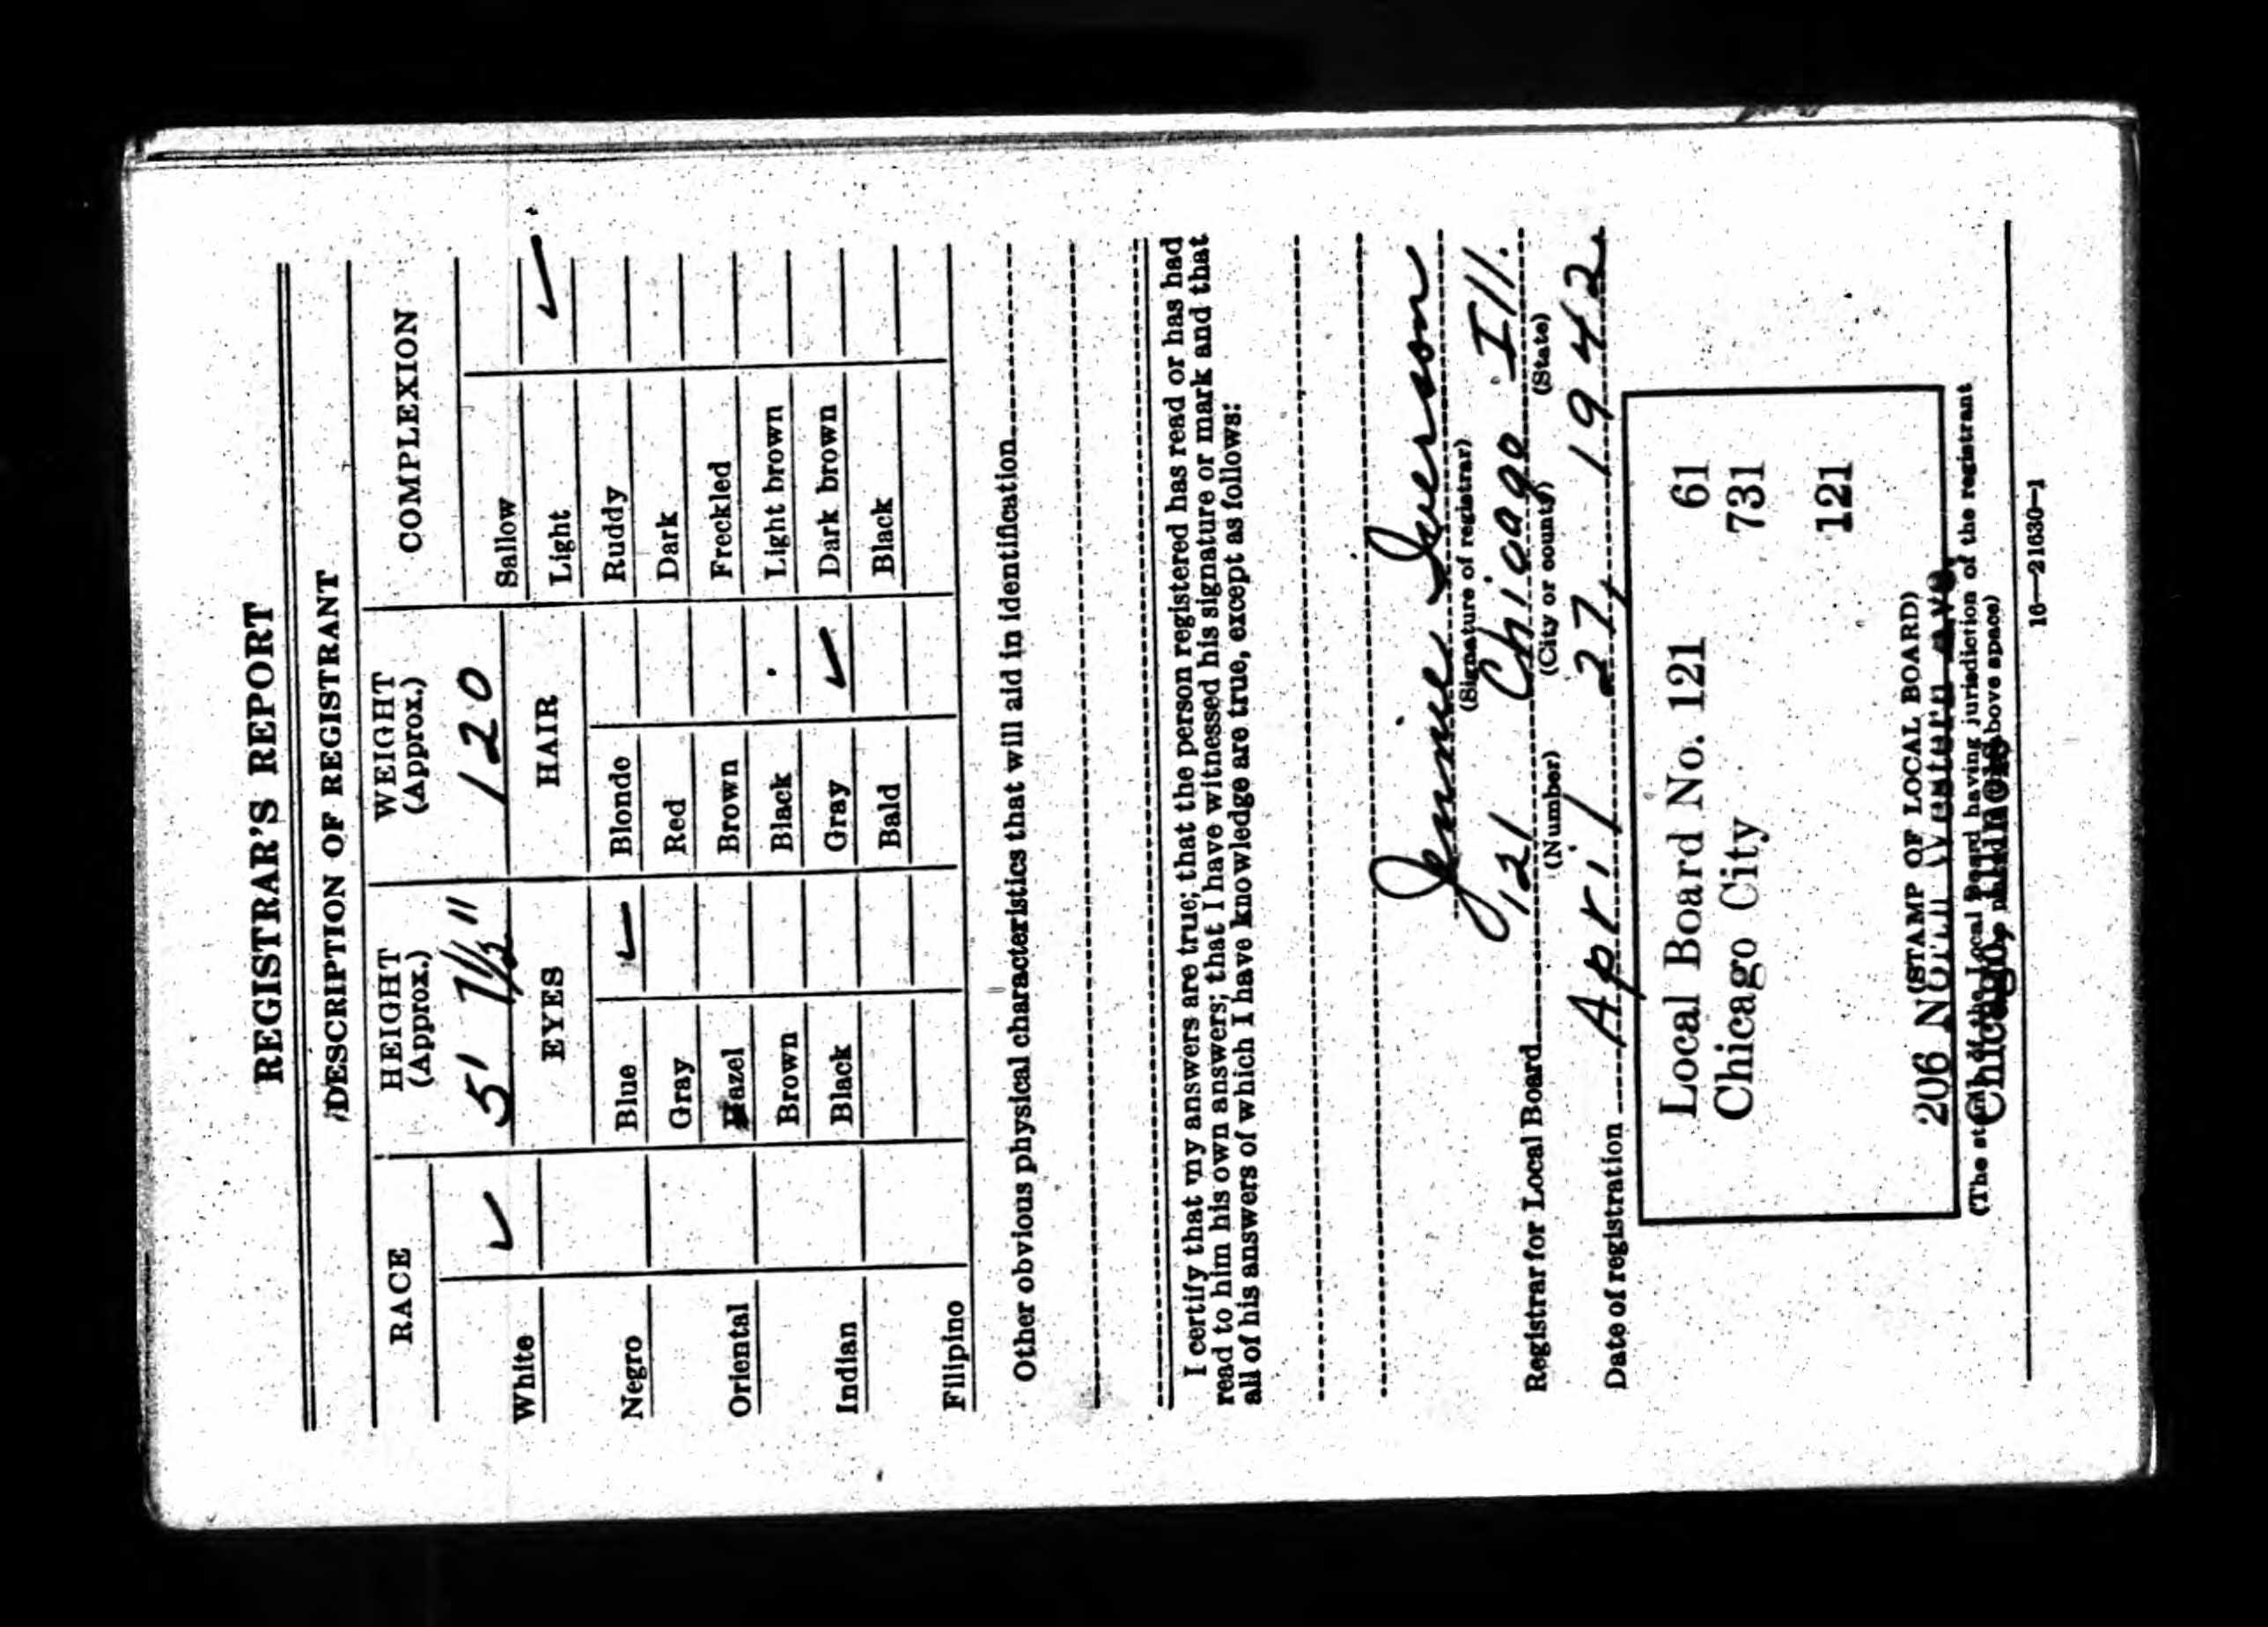 REGISTRAR'S REPORT
DESCRIPTION OF REGISTRANT
RACE
HEIGHT (Approx.)
WEIGHT (Approx.)
COMPLEXION
White ✓
5' 7½"
120
Sallow
EYES
HAIR
Light ✓
Negro
Blue ✓
Blonde
Ruddy
Gray
Red
Dark
Oriental
Hazel
Brown
Freckled
Brown
Black
Light brown
Indian
Black
Gray ✓
Dark brown
Bald
Black
Filipino
Other obvious physical characteristics that will aid in identification
I certify that my answers are true; that the person registered has read or has had
read to him his own answers; that I have witnessed his signature or mark and that
all of his answers of which I have knowledge are true, except as follows:
Jennie Iverson
(Signature of registrar)
Registrar for Local Board 121 Chicago Ill.
(Number) (City or county) (State)
Date of registration April 27, 1942
Local Board No. 121 61
Chicago City 731
121
(STAMP OF LOCAL BOARD)
206 North Western Ave.
(The stamp of the Local Board having jurisdiction of the registrant
Chicago, Illinois above space)
16—21630-1